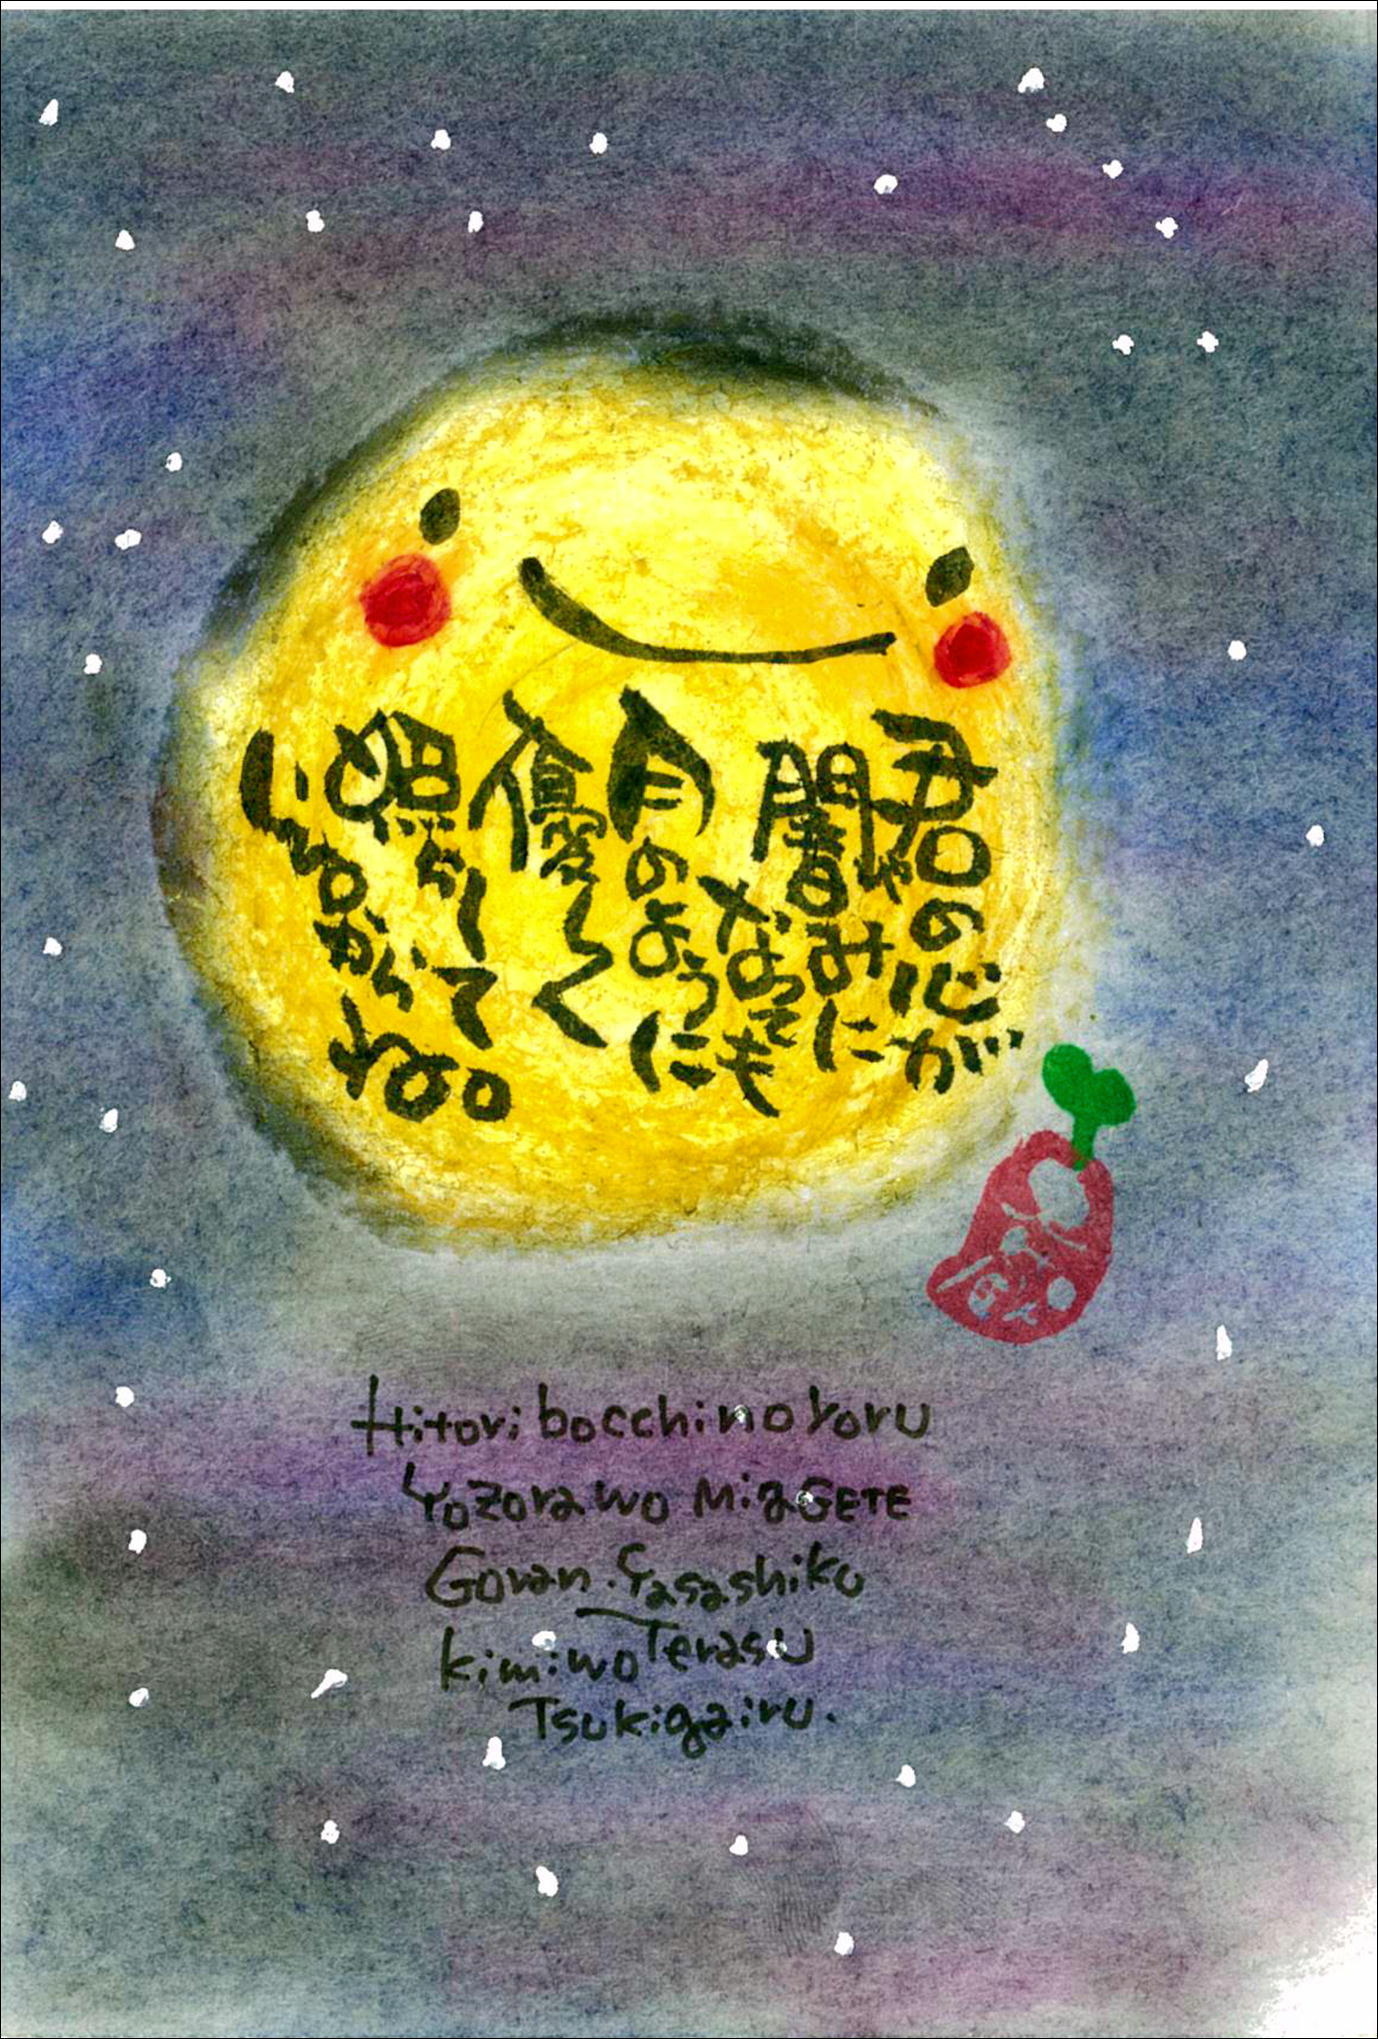 君の心が
闇やみに
なっても
月のように
優しく
照らして
いるからね
Hitori bocchi no Yoru
Yozora wo MiaGETE
Goran. Yasashiku
kimi wo Terasu
Tsuki ga iru.